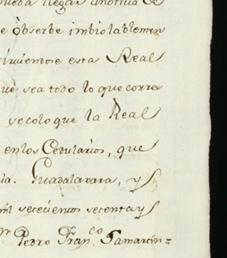 pueda llegar anoticia de
e òbserbe imbiolablemen
tituiendose esta Real
que sea todo lo que corra
vecolo que la Real
enlos Cedularios, que
ia. Guadalaxara, y
mil setecientos setenta y
Pedro Fran.co Samartin=